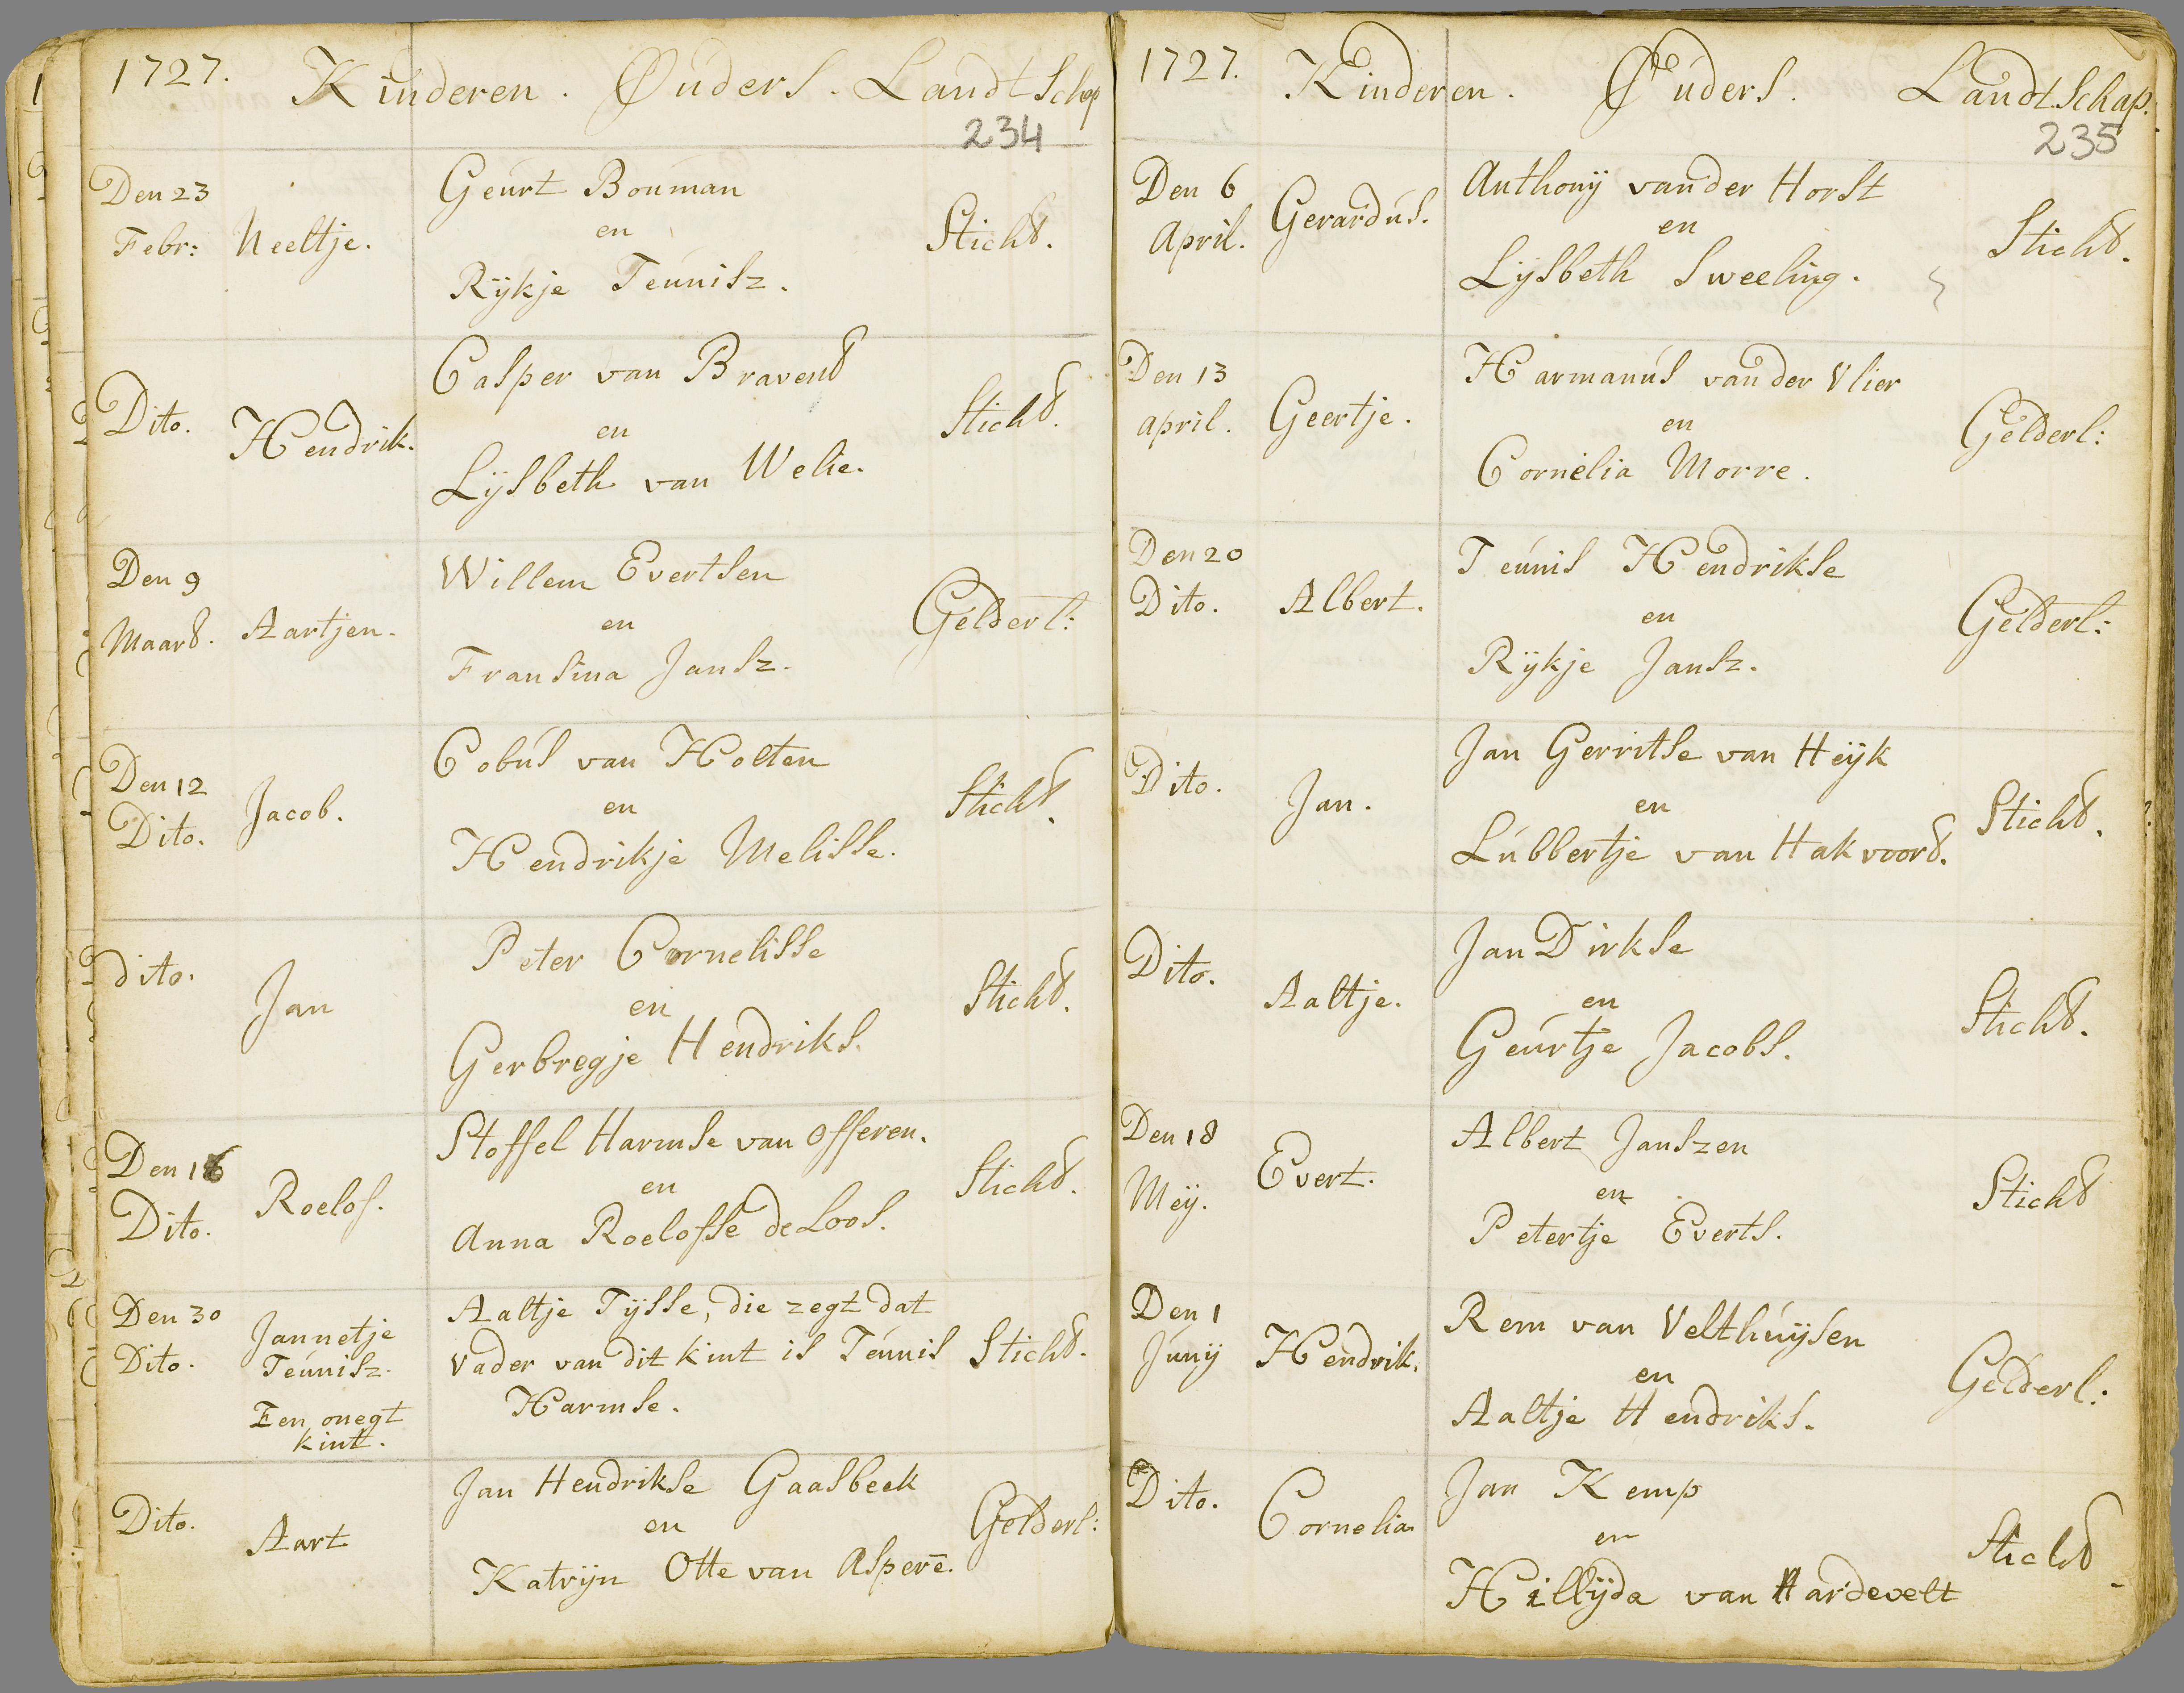 1727. Kinderen. Ouders. Landtschap
234
Den 23
Febr: Neeltje.
Geurt Bouman
en
Rijkje Teunisz.
Sticht.
Dito. Hendrik.
Casper van Bravent
en
Lijsbeth van Welie.
Sticht.
Den 9
Maart. Aartjen.
Willem Evertsen
en
Fransina Jansz.
Gelderl:
Den 12
Dito. Jacob.
Cobus van Holten
en
Hendrikje Melisse.
Sticht.
dito. Jan
Peter Cornelisse
en
Gerbregje Hendriks.
Sticht.
Den 16
Dito. Roelof.
Stoffel Harmse van Offeren.
en
Anna Roelofse de Loos.
Sticht.
Den 30
Dito.
Jannetje
Teunisz.
Een onegt
kint.
Aaltje Tijsse, die zegt dat
vader van dit kint is Teunis
Harmse.
Sticht.
Dito. Aart
Jan Hendrikse Gaasbeek
en
Katrijn Otte van Asperē.
Gelderl:
1727. Kinderen. Ouders. Landtschap.
235
Den 6
April. Gerardus.
Anthonij vander Horst
en
Lijsbeth Sweeling.
Sticht.
Den 13
april. Geertje.
Harmanus van der Vlier
en
Cornelia Morre.
Gelderl:
Den 20
Dito. Albert.
Teunis Hendrikse
en
Rijkje Jansz.
Gelderl:
Dito. Jan.
Jan Gerritse van Heijk
en
Lubbertje van Hakvoort.
Sticht.
Dito. Aaltje.
Jan Dirkse
en
Geurtje Jacobs.
Sticht.
Den 18
Meij. Evert.
Albert Janszen
en
Petertje Everts.
Sticht
Den 1
Junij Hendrik.
Rem van Velthuijsen
en
Aaltje Hendriks.
Gelderl:
Dito. Cornelia
Jan Kemp
en
Hillijda van Hardevelt
Sticht.